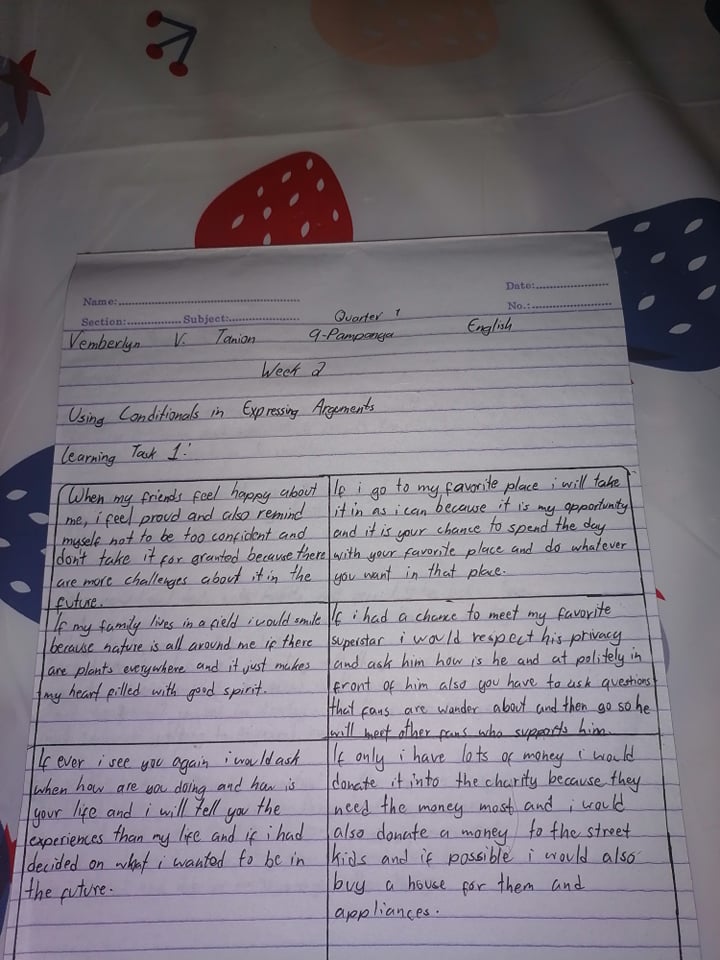 Date:
Name:
No.:
Section: Subject:
Quarter 1
Vemberlyn V. Tanion 9-Pampanga English
Week 2
Using Conditionals in Expressing Arguments
Learning Task 1:
When my friends feel happy about
me, i feel proud and also remind
myself not to be too confident and
don't take it for granted because there
are more challenges about it in the
future.
If i go to my favorite place i will take
it in as i can because it is my opportunity
and it is your chance to spend the day
with your favorite place and do whatever
you want in that place.
If my family lives in a field i would smile
because nature is all around me if there
are plants everywhere and it just makes
my heart filled with good spirit.
If i had a chance to meet my favorite
superstar i would respect his privacy
and ask him how is he and at politely in
front of him also you have to ask questions
that fans are wander about and then go so he
will meet other fans who supports him.
If ever i see you again i would ask
when how are you doing and how is
your life and i will tell you the
experiences than my life and if i had
decided on what i wanted to be in
the future.
If only i have lots of money i would
donate it into the charity because they
need the money most and i would
also donate a money to the street
kids and if possible i would also
buy a house for them and
appliances.